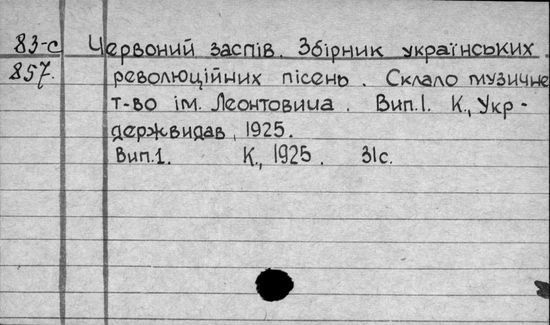 83-с Червоний заспів. Збірник українських
857. революційних пісень. Склало музичне
т-во ім. Леонтовича. Вип.I. К., Укр-
державидав, 1925.
Вип.1. К., 1925. 31с.